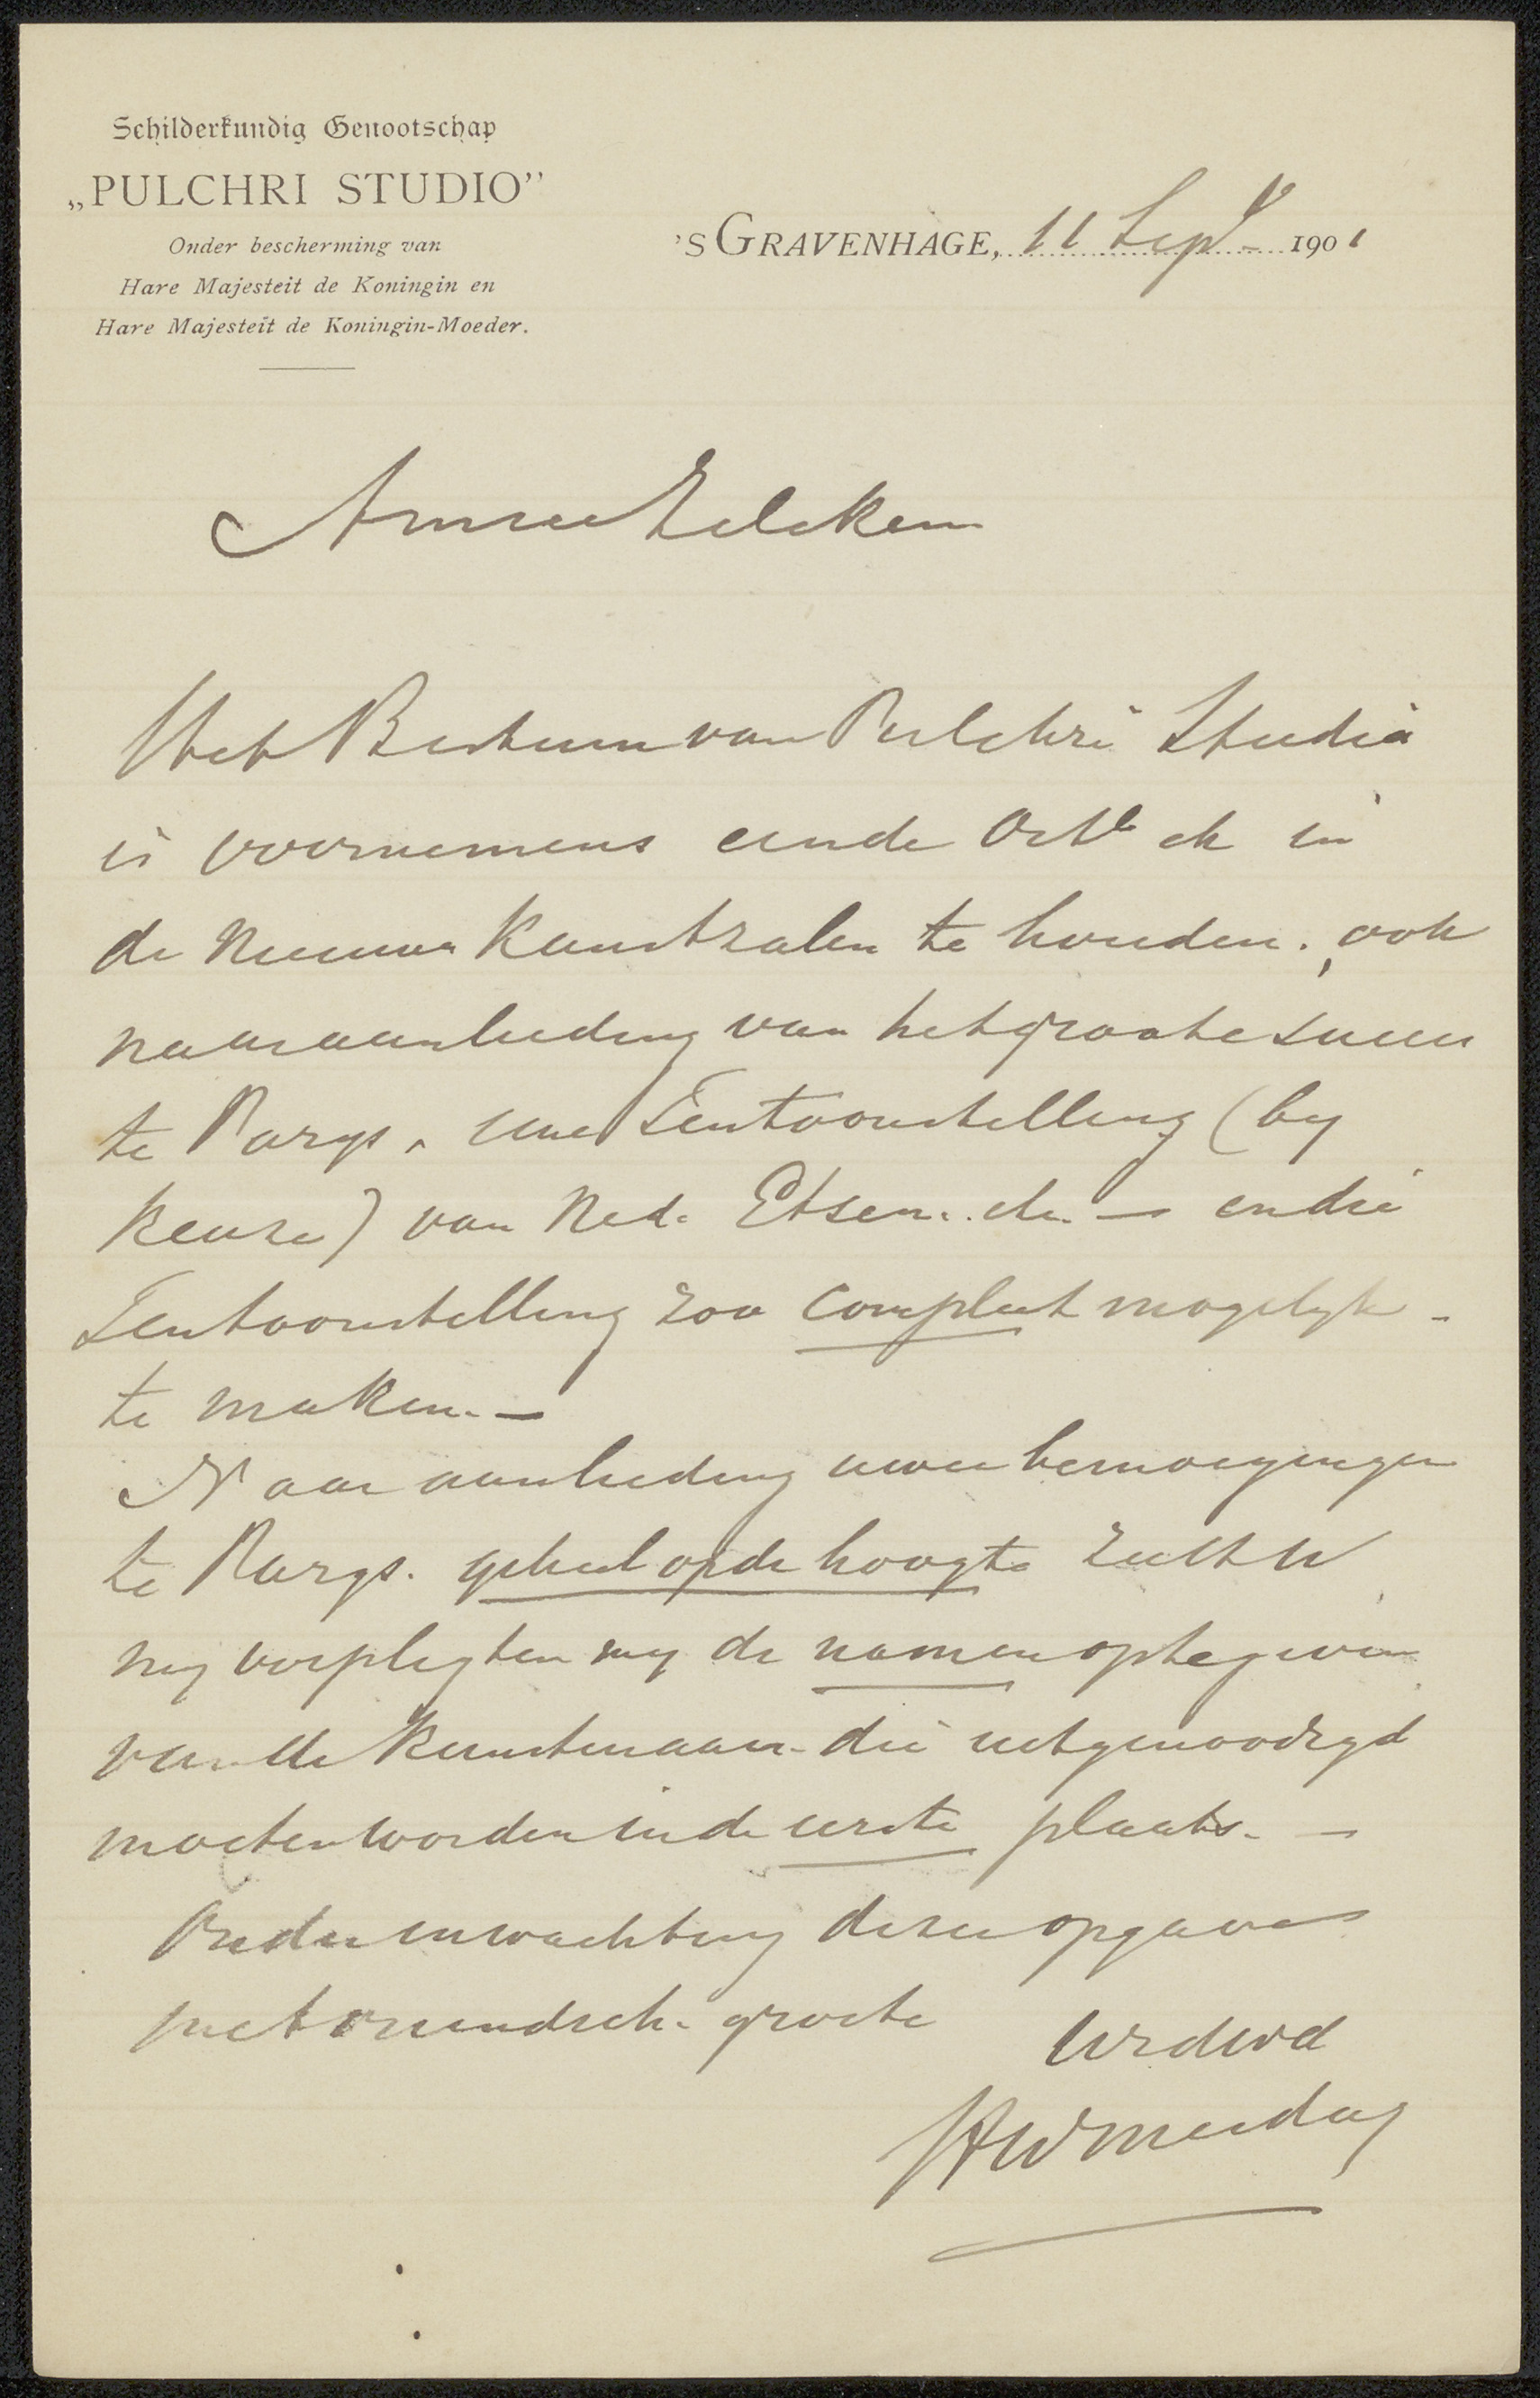 Schilderkundig Genootschap
„PULCHRI STUDIO”
Onder bescherming van
Hare Majesteit de Koningin en
Hare Majesteit de Koningin-Moeder.
'S GRAVENHAGE, 11 Sept 1901
Amice Zilcken
Het Bestuur van Pulchri Studio
is voornemens einde Octb in
de nieuwe Kunstzalen te houden, ook
naar aanleiding van het groote succes
te Parys, eene Tentoonstelling (by
keuze) van Ned. Etsen. etc. — en die
Tentoonstelling zoo compleet mogelyk
te maken. —
Naar aanleiding uwer bemoeyingen
te Parys. geheel op de hoogte zult U
my verpligten my de namen op te geven
van de Kunstenaars die uitgenoodigd
moeten worden in de eerste plaats. —
In de verwachting dezer opgave
met vriendsch. groete
Uw dwd
HWMesdag